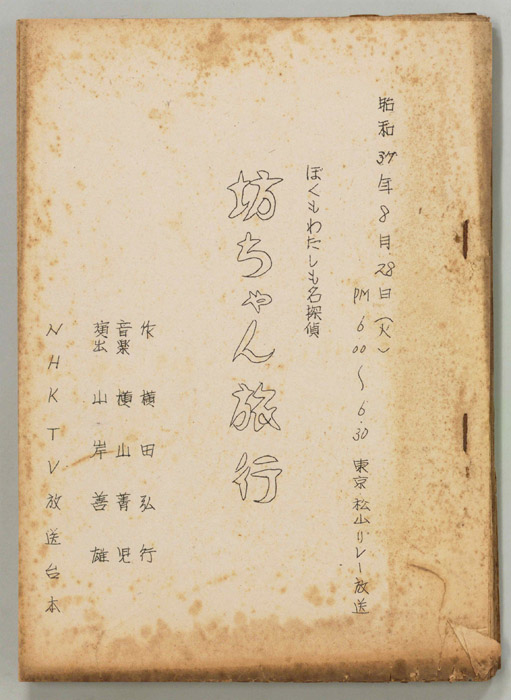 昭和37年8月28日(火)
PM6.00〜6.30 東京松山リレー放送
ぼくもわたしも名探偵
坊ちゃん旅行
作 横田弘行
音楽 横山菁児
演出 山岸善雄
NHKTV放送台本